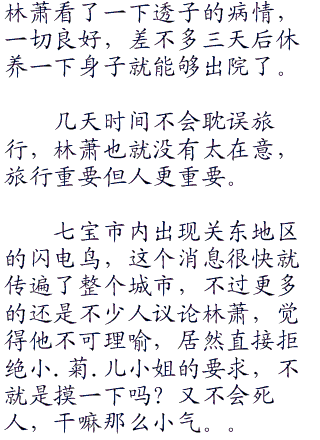 林萧看了一下透子的病情，
一切良好，差不多三天后休
养一下身子就能够出院了。
几天时间不会耽误旅
行，林萧也就没有太在意，
旅行重要但人更重要。
七宝市内出现关东地区
的闪电鸟，这个消息很快就
传遍了整个城市，不过更多
的还是不少人议论林萧，觉
得他不可理喻，居然直接拒
绝小.菊.儿小姐的要求，不
就是摸一下吗？又不会死
人，干嘛那么小气。。